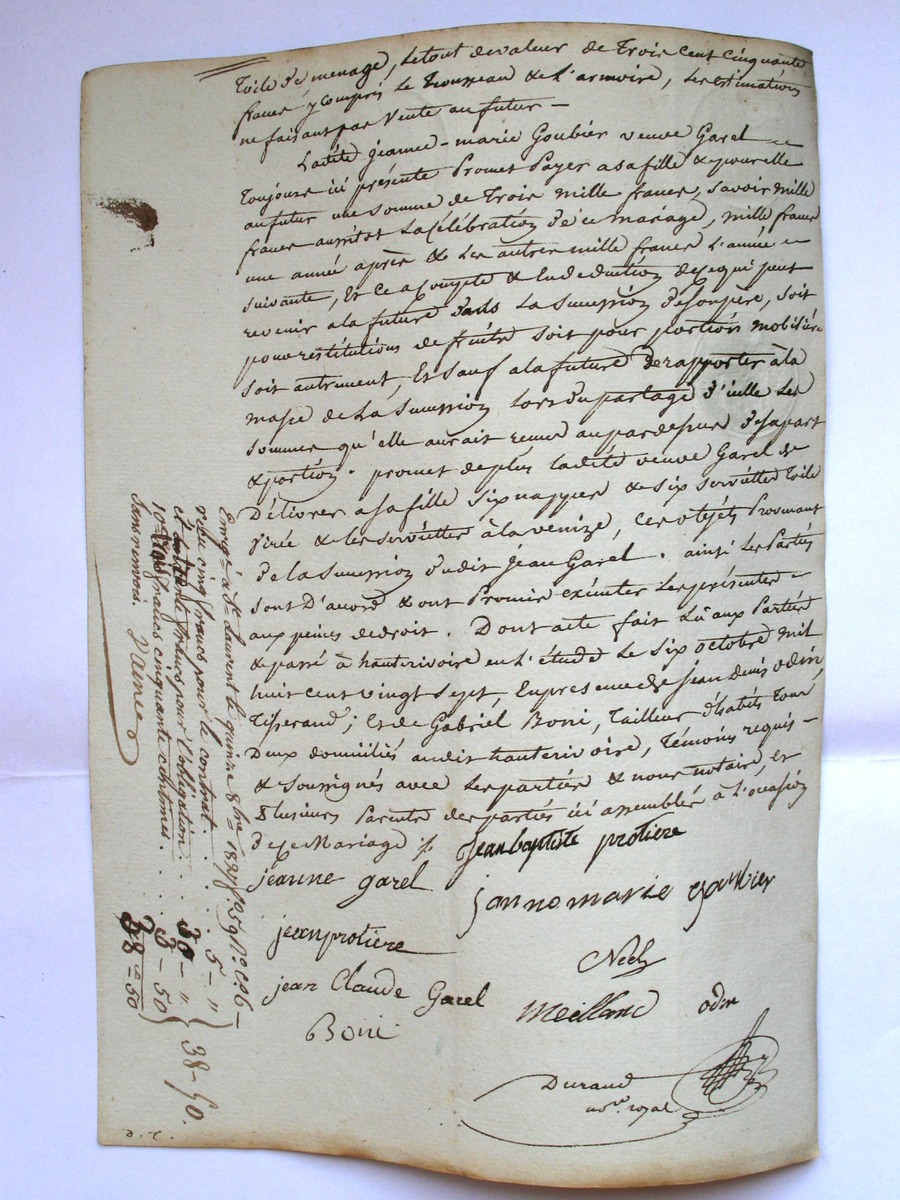 Toile de menage, le tout de valeur de Trois cent cinquante
francs y compris le Trousseau & l'armoire, les estimations
ne faisant pas Vente au futur —
Ladite jeanne-marie Goubier veuve Garel
Toujours ici présente Promet Payer a sa fille & pour elle
au futur une somme de Trois mille francs, savoir mille
francs aussitot la Célébration de ce mariage, mille francs
une année après & les autres mille francs l'année
suivante, Et ce a compte & En deduction de ce qui peut
revenir a la future dans la Succession de son père, soit
pour restitutions de fruits soit pour portions mobilières
soit autrement, Et sauf a la future de rapporter à la
masse de la Succession lors du partage d'icelle les
sommes qu'elle aurait reçues au par dessus de sa part
& portion. promet de plus ladite veuve Garel de
Délivrer a sa fille six nappes & six serviettes Toile
& les serviettes à la venize, ces objets Provenant
de la Succession dudit jean Garel. ainsi les Parties
sont D'accord & ont Promis exécuter les présentes
aux peines de droit. Dont acte fait Lû aux Parties
& passé à hauterivoire en l'étude le six octobre mil
huit cent vingt sept, En présence de jean Denis odin
Tisserand; Et de Gabriel Boni, Tailleur d'habits Tous
Deux domiciliés audit hauterivoire, Témoins requis —
& Soussignés avec les parties & nous notaire, et
Plusieurs Parents des parties ici assemblés à l'occasion
de ce Mariage ./.
jean baptiste protiere
jeanne garel
janne marie goubier
jean protiere
jean Claude Garel
Meilland odin
Boni
Durand
no.re royal
Enreg.é à S.t Laurent le quinze 8bre 1827 f.o 59
reçu cinq francs pour le contrat . . . 5 - "
et trente francs pour l'obligation . . . 30 - "
10.e trois francs cinquante centimes . . . 3 - 50
38 - 50
38 - 50.
sans renvois.